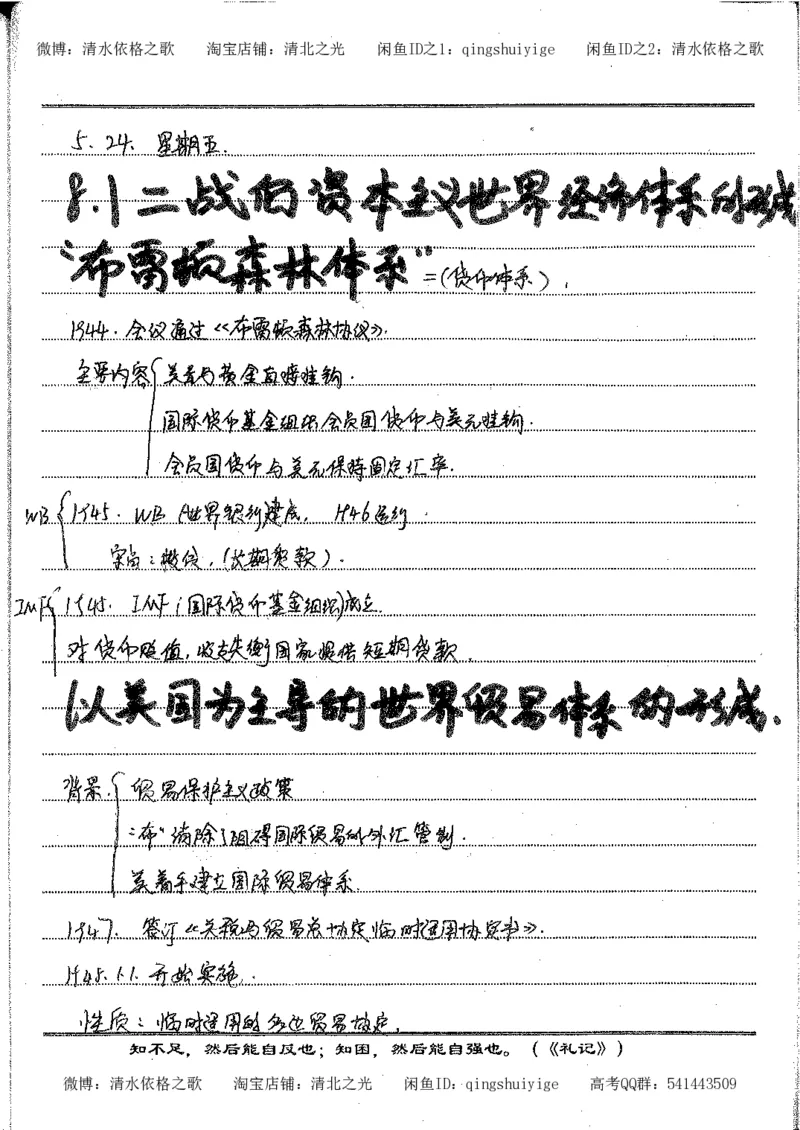 微博：清水依格之歌 淘宝店铺：清北之光 闲鱼ID之1：qingshuiyige 闲鱼ID之2：清水依格之歌
5.24. 星期五.
8.1 二战后资本主义世界经济体系的形成
“布雷顿森林体系”=(货币体系).
1944. 会议通过《布雷顿森林协议》.
主要内容 美元与黄金直接挂钩.
国际货币基金组织会员国货币与美元挂钩.
会员国货币与美元保持固定汇率.
WB 1945. WB (世界银行)建成, 1946运行.
宗旨: (长期贷款).
IMF 1945. IMF (国际货币基金组织)成立.
对货币贬值, 收支失衡国家提供短期贷款.
以美国为主导的世界贸易体系的形成.
背景. 贸易保护主义政策
“布”消除了阻碍国际贸易的外汇管制.
美着手建立国际贸易体系.
1947. 签订《关税与贸易总协定临时适用协定书》.
1948.1.1. 开始实施.
性质: 临时适用的多边贸易协定.
知不足，然后能自反也；知困，然后能自强也。（《礼记》）
微博：清水依格之歌 淘宝店铺：清北之光 闲鱼ID：qingshuiyige 高考QQ群：541443509